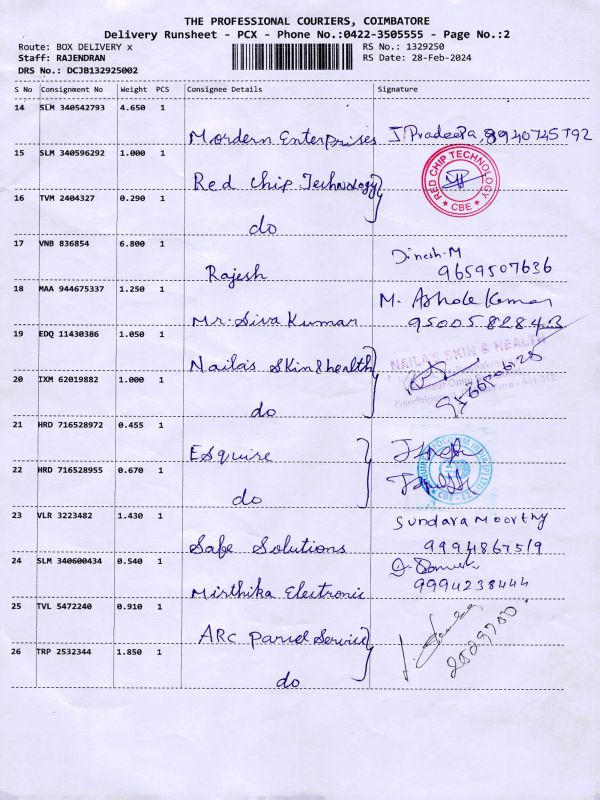 THE PROFESSIONAL COURIERS, COIMBATORE
Delivery Runsheet - PCX - Phone No.:0422-3505555 - Page No.:2
Route: BOX DELIVERY x RS No.: 1329250
Staff: RAJENDRAN RS Date: 28-Feb-2024
DRS No.: DCJB132925002
S No Consignment No Weight PCS Consignee Details Signature
14 SLM 340542793 4.650 1
Mordern Enterprises J. Pradeepa, 9940745792
15 SLM 340596292 1.000 1
Red Chip Technology RED CHIP TECHNOLOGY CBE
16 TVM 2404327 0.290 1
do
17 VNB 836854 6.800 1
Rajesh Dinesh.M
9659507636
18 MAA 944675337 1.250 1
Mr. Siva Kumar M. Ashok Kumar
19 EDQ 11430386 1.050 1
Naila's Skin & health NAILA'S SKIN & HEALTH
20 IXM 62019882 1.000 1
do
21 HRD 716528972 0.455 1
Esquire
22 HRD 716528955 0.670 1
do
23 VLR 3223482 1.430 1
Safe Solutions Sundara Moorthy
9994867519
24 SLM 340600434 0.540 1
Mirthika Electronic 9994238444
25 TVL 5472240 0.910 1
ARC Parcel Service
26 TRP 2532344 1.850 1
do